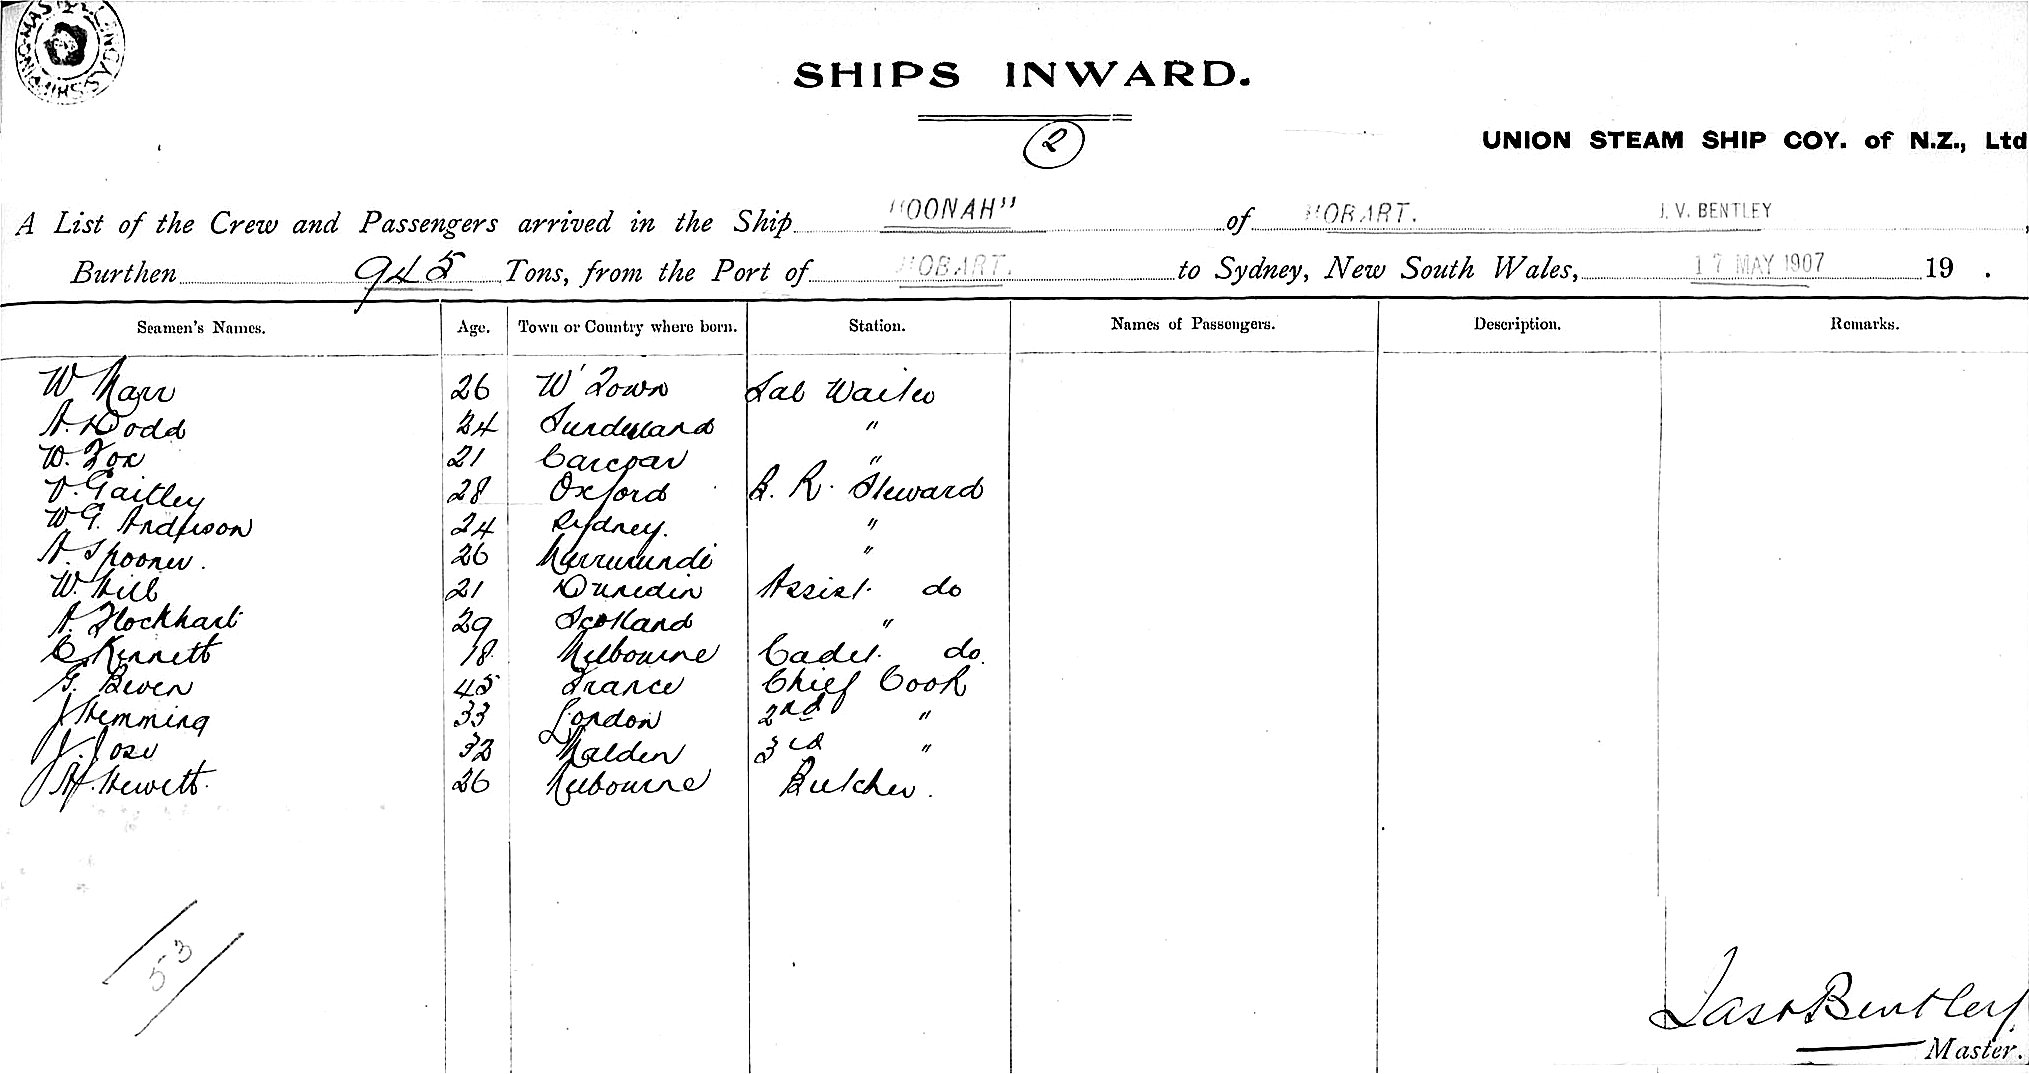 SHIPPING MASTER
SHIPS INWARD.
2
UNION STEAM SHIP COY. of N.Z., Ltd
A List of the Crew and Passengers arrived in the Ship "OONAH" of HOBART. J. V. BENTLEY,
Burthen 945 Tons, from the Port of HOBART. to Sydney, New South Wales, 17 MAY 1907 19 .
Seamen's Names. Age. Town or Country where born. Station. Names of Passengers. Description. Remarks.
W Marr 26 W' Town Sal Waiter
A. Dodd 24 Sunderland "
W. Fox 21 Carcoar "
V. Gaitley 28 Oxford B. R. Steward
W G. Anderson 24 Sydney. "
A. Spooner. 26 Murrurundi "
W. Hill 21 Dunedin Assist. do
A. Flockhart 29 Scotland "
C. Kennett 18 Melbourne Cadet. do.
G. Beven 45 France Chief Cook
J. Hemming 33 London 2nd "
J. Jose 32 Malden 3rd "
H. Hewett. 26 Melbourne Butcher.
53
Jas V Bentley
Master.